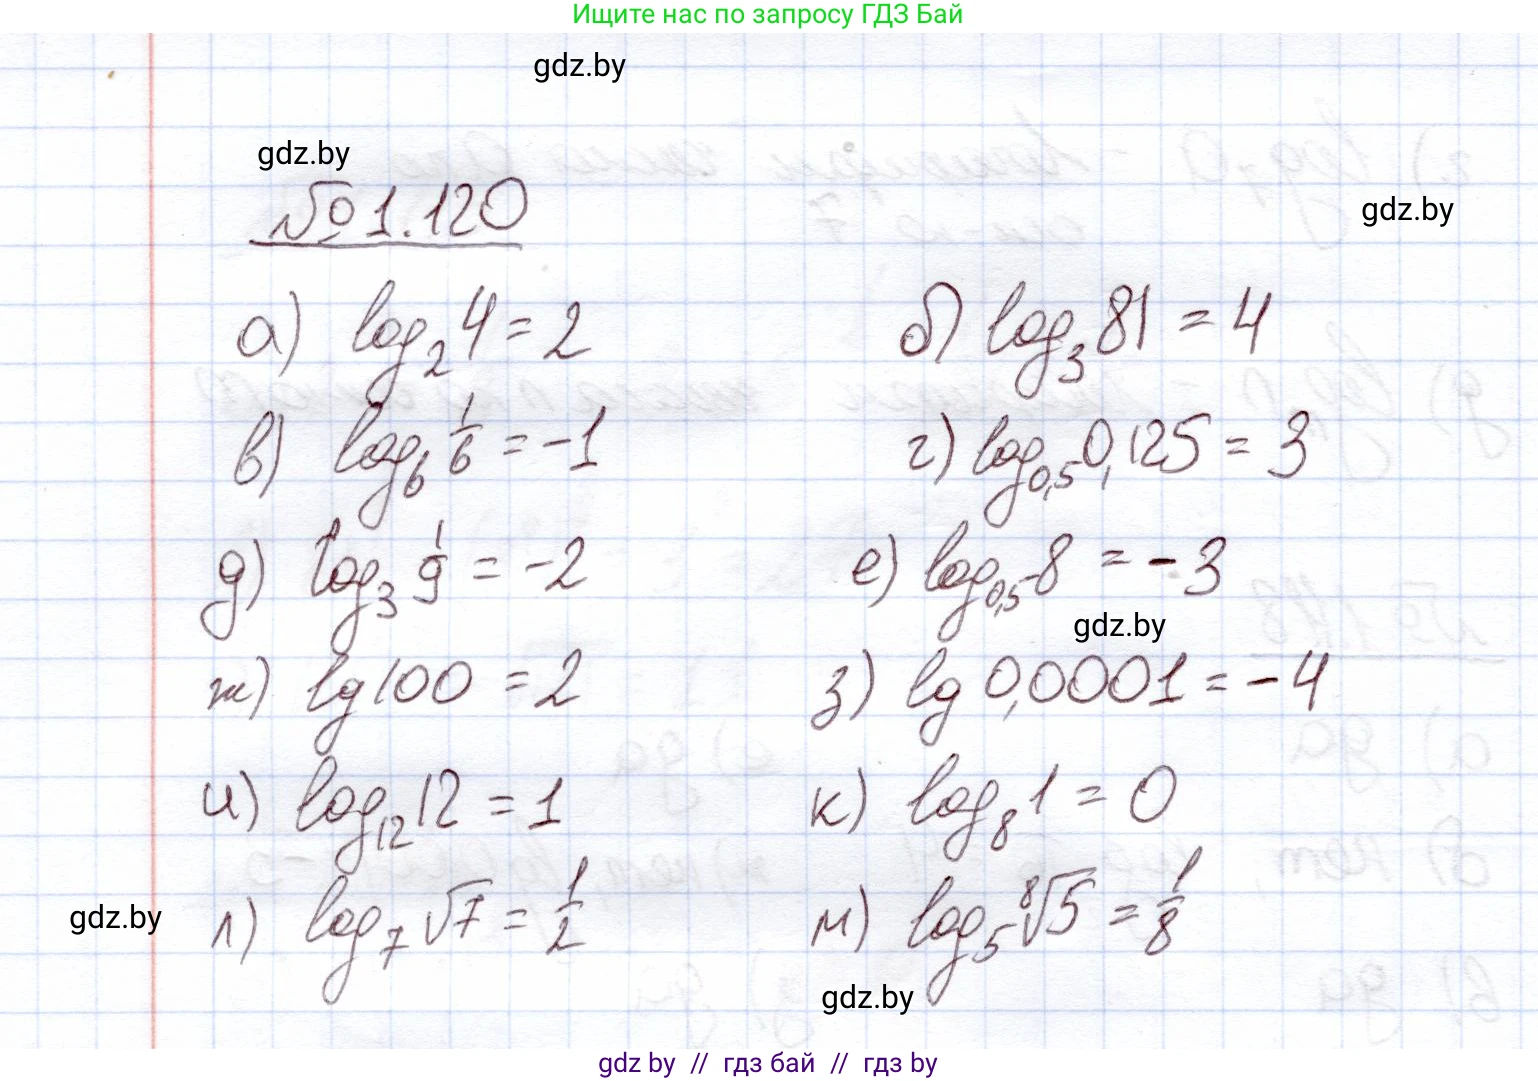 Ищите нас по запросу ГДЗ Бай
gdz.by
gdz.by
№1.120
gdz.by
а) log₂4 = 2
б) log₃81 = 4
в) log₆ 1/6 = -1
г) log₀,₅0,125 = 3
д) log₃ 1/9 = -2
е) log₀,₅8 = -3
gdz.by
ж) lg100 = 2
з) lg 0,0001 = -4
и) log₁₂12 = 1
к) log₈1 = 0
л) log₇√7 = 1/2
м) log₅⁸√5 = 1/8
gdz.by
gdz.by
gdz by // гдз бай // гдз by